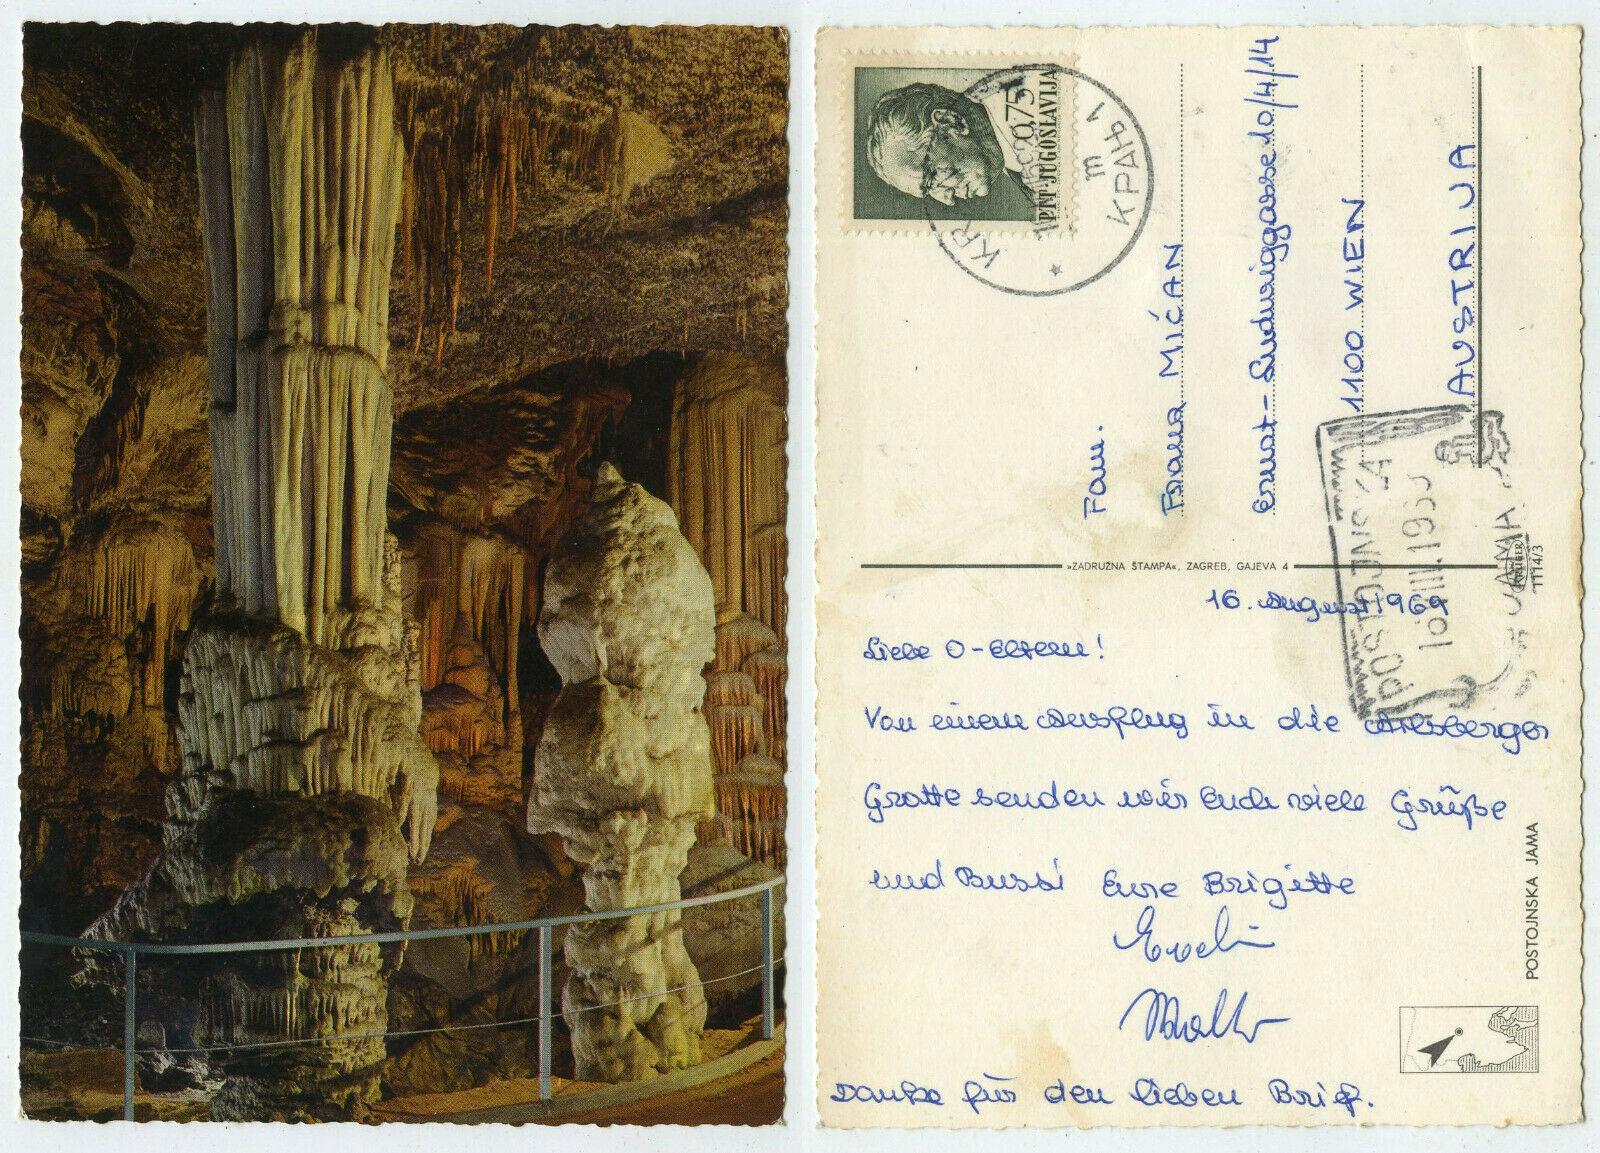 0,75
PTT-JUGOSLAVIJA
КРАЊ 1
m
Fam.
Frana MIĆAN
Ernst-Ludwiggasse 10/4/14
1100 WIEN
AVSTRIJA
»ZADRUŽNA ŠTAMPA«, ZAGREB, GAJEVA 4
KRÜGER
1114/3
POSTOJNSKA
JAMA
16. August 1969
Liebe O-Eltern!
Von einem Ausflug in die Adlsberger
Grotte senden wir Euch viele Grüße
und Bussi Eure Brigitte
Evelin
Walter
Danke für den lieben Brief.
POSTOJNSKA JAMA